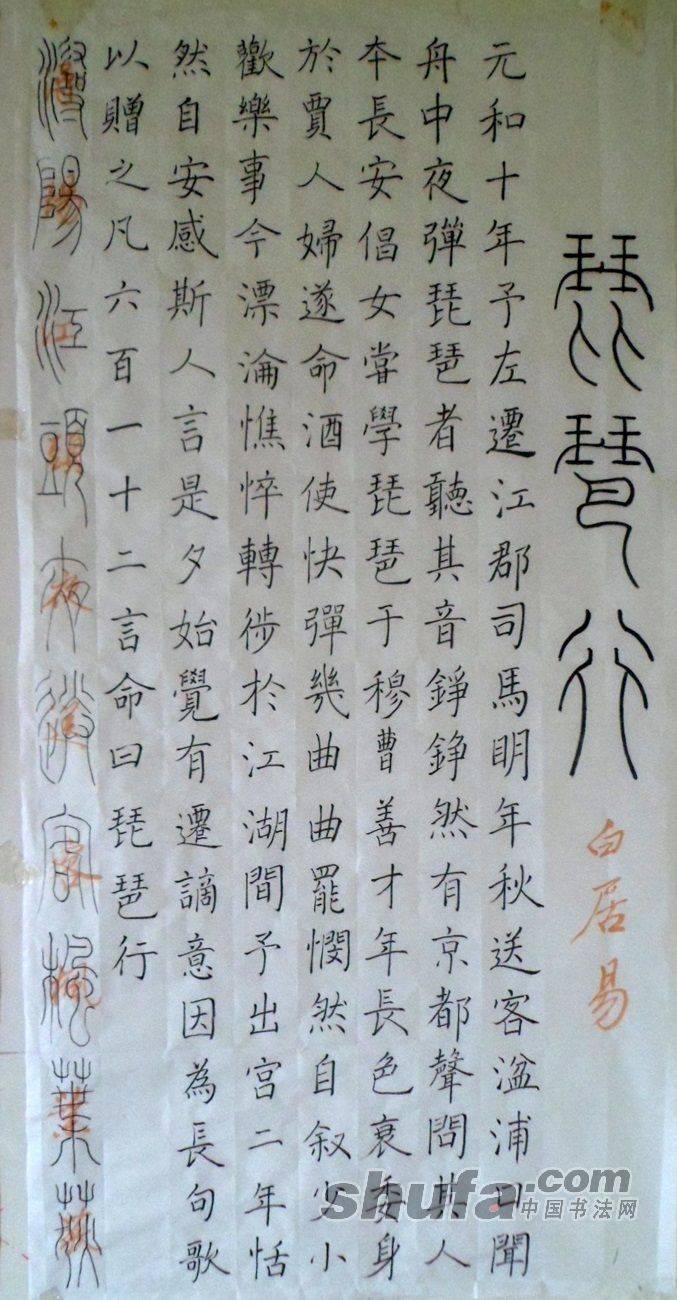 琵琶行
白居易
元和十年予左遷江郡司馬明年秋送客湓浦口聞
舟中夜彈琵琶者聽其音錚錚然有京都聲問其人
本長安倡女嘗學琵琶于穆曹善才年長色衰委身
於賈人婦遂命酒使快彈幾曲曲罷憫然自叙少小
歡樂事今漂淪憔悴轉徙於江湖間予出宫二年恬
然自安感斯人言是夕始覺有遷謫意因為長句歌
以贈之凡六百一十二言命曰琵琶行
潯陽江頭夜送客楓葉荻
shufa.com
中国书法网